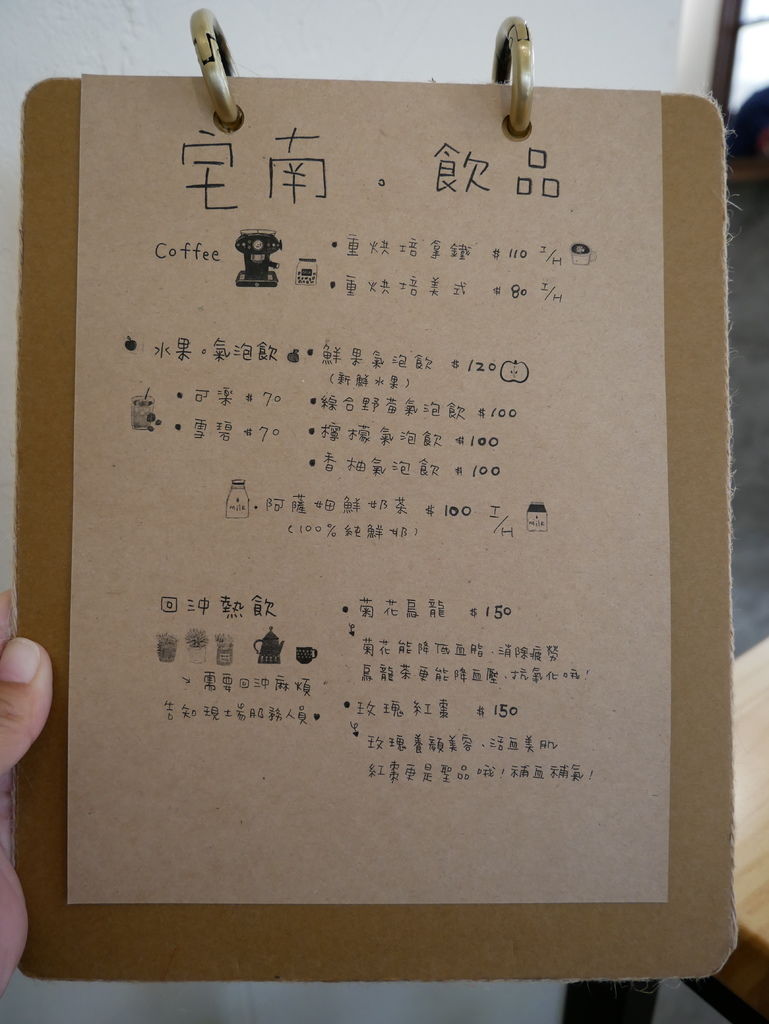 宅南。飲品
Coffee
•重烘培拿鐵 $110 I/H
•重烘培美式 $80 I/H
水果。氣泡飲
•可樂 $70
•雪碧 $70
•鮮果氣泡飲 $120
(新鮮水果)
•綜合野莓氣泡飲 $100
•檸檬氣泡飲 $100
•香柚氣泡飲 $100
milk
•阿薩姆鮮奶茶 $100 I/H
(100%純鮮奶)
milk
回沖熱飲
需要回沖麻煩
告知現場服務人員
•菊花烏龍 $150
菊花能降低血脂、消除疲勞
烏龍茶更能降血壓、抗氧化哦!
•玫瑰紅棗 $150
玫瑰養顏美容、活血美肌
紅棗更是聖品哦!補血補氣!